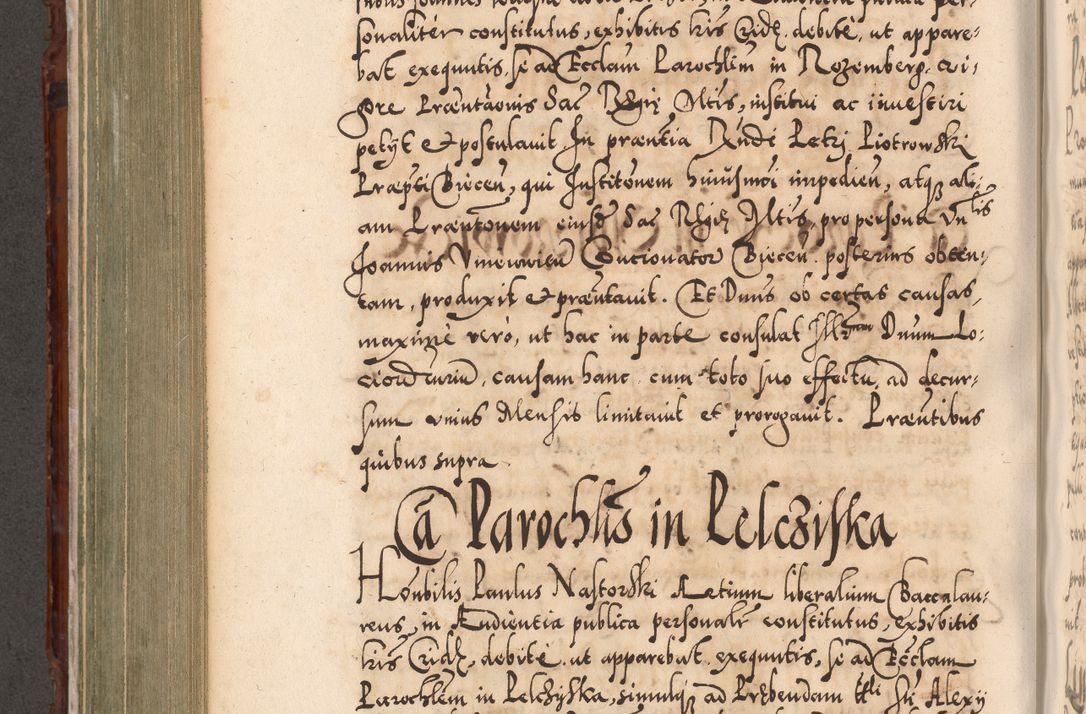 sonaliter constitutus, exhibitis lris Cridæ, debite, ut appare-
bat exequutis, se ad Ecclam Parochlem in Rozemberg, vi-
gore Præntaonis Sac Regiæ Mtis, institui ac investiri
petijt et postulavit In præntia Rndi Petri Piotrowski
Præpti Biecen, qui Institonem huiusmoi impedien, atqz ali-
am Præntonem eiusd Sac Regiæ Mtis, pro persona Vnlis
Joannis Concionator Biecen posterius obten-
tam, produxit et præntavit. Et Dnus ob certas causas,
maxime vero, ut hac in parte consulat Illrem Dnum Lo-
ci ord, causam hanc cum toto suo effectu, ad decur-
sum unius Mensis limitavit et prorogavit. Præntibus
quibus supra
Ca Parochlis in Pelcziska
Honbilis Paulus Nastorski Artium liberalium Baccalau-
reus, in Audientia publica personalr constitutus, exhibitis
lris Cridæ, debite ut apparebat exequutis, se ad Ecclam
Parochlem in Pelczyska, simulqz ad Præbendam tli Sti Alexy